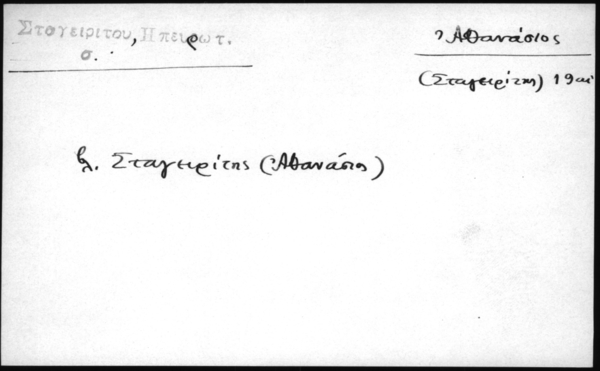 Σταγειρίτου, Ηπειρωτ.
σ.
Ἀθανάσιος
(Σταγειρίτης) 19αι
βλ. Σταγειρίτης (Ἀθανάσιος)